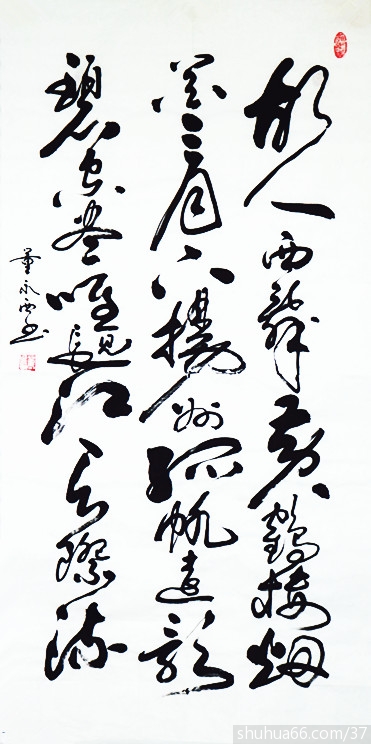 故人西辭黄鶴楼烟
花三月下揚州孤帆遠影
碧空尽唯見長江天际流
董永书
shuhua66.com/37